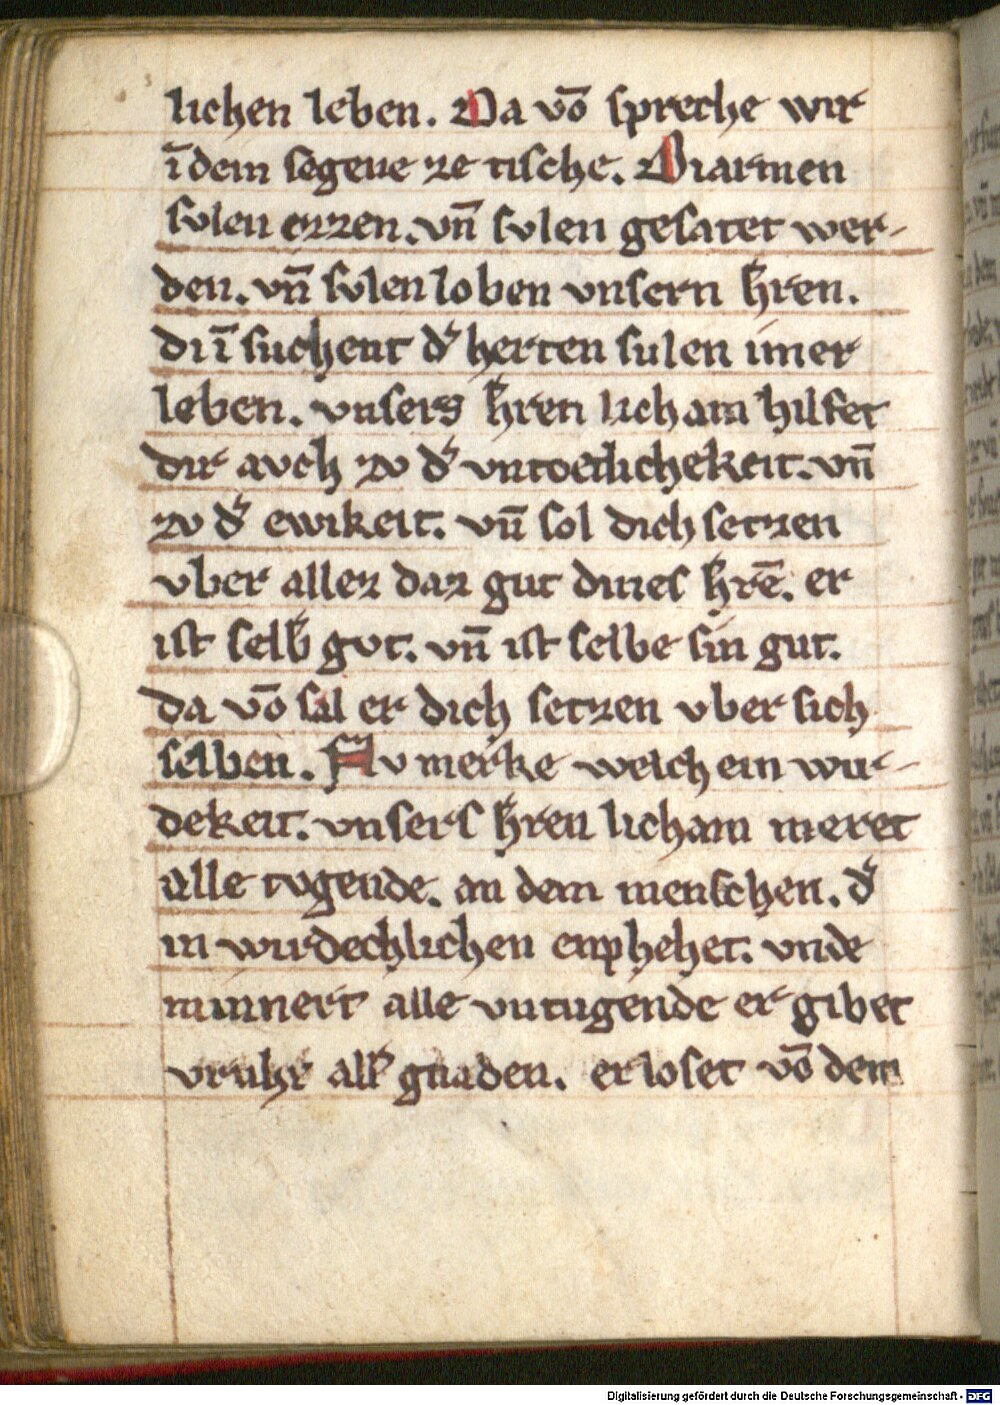 lichen leben. Da vō spreche wir
ī dem segene ze tische. Di armen
svlen ezzen. vn̄ svlen gesatet wer-
den. vn̄ svlen loben vnsern h̄ren.
di ī suchent d᷑ herten sulen imer
leben. vnsers h̄ren licham hilfet
dir avch zv d᷑ vntoetlichekeit. vn̄
zv d᷑ ewikeit. vn̄ sol dich setzen
vber allez daz gut dines h̄rē. er
ist selb got. vn̄ ist selbe sin gut.
da vō sal er dich setzen vber sich
selben. Nv merke welch ein wir-
dekeit. vnsers h̄ren licham meret
alle tvgende. an dem menschen. d᷑
in wirdechlichen enphehet. vnde
minnert alle vntugende er gibet
vruht all᷑ gnaden. er loset vō dem
Digitalisierung gefördert durch die Deutsche Forschungsgemeinschaft - DFG